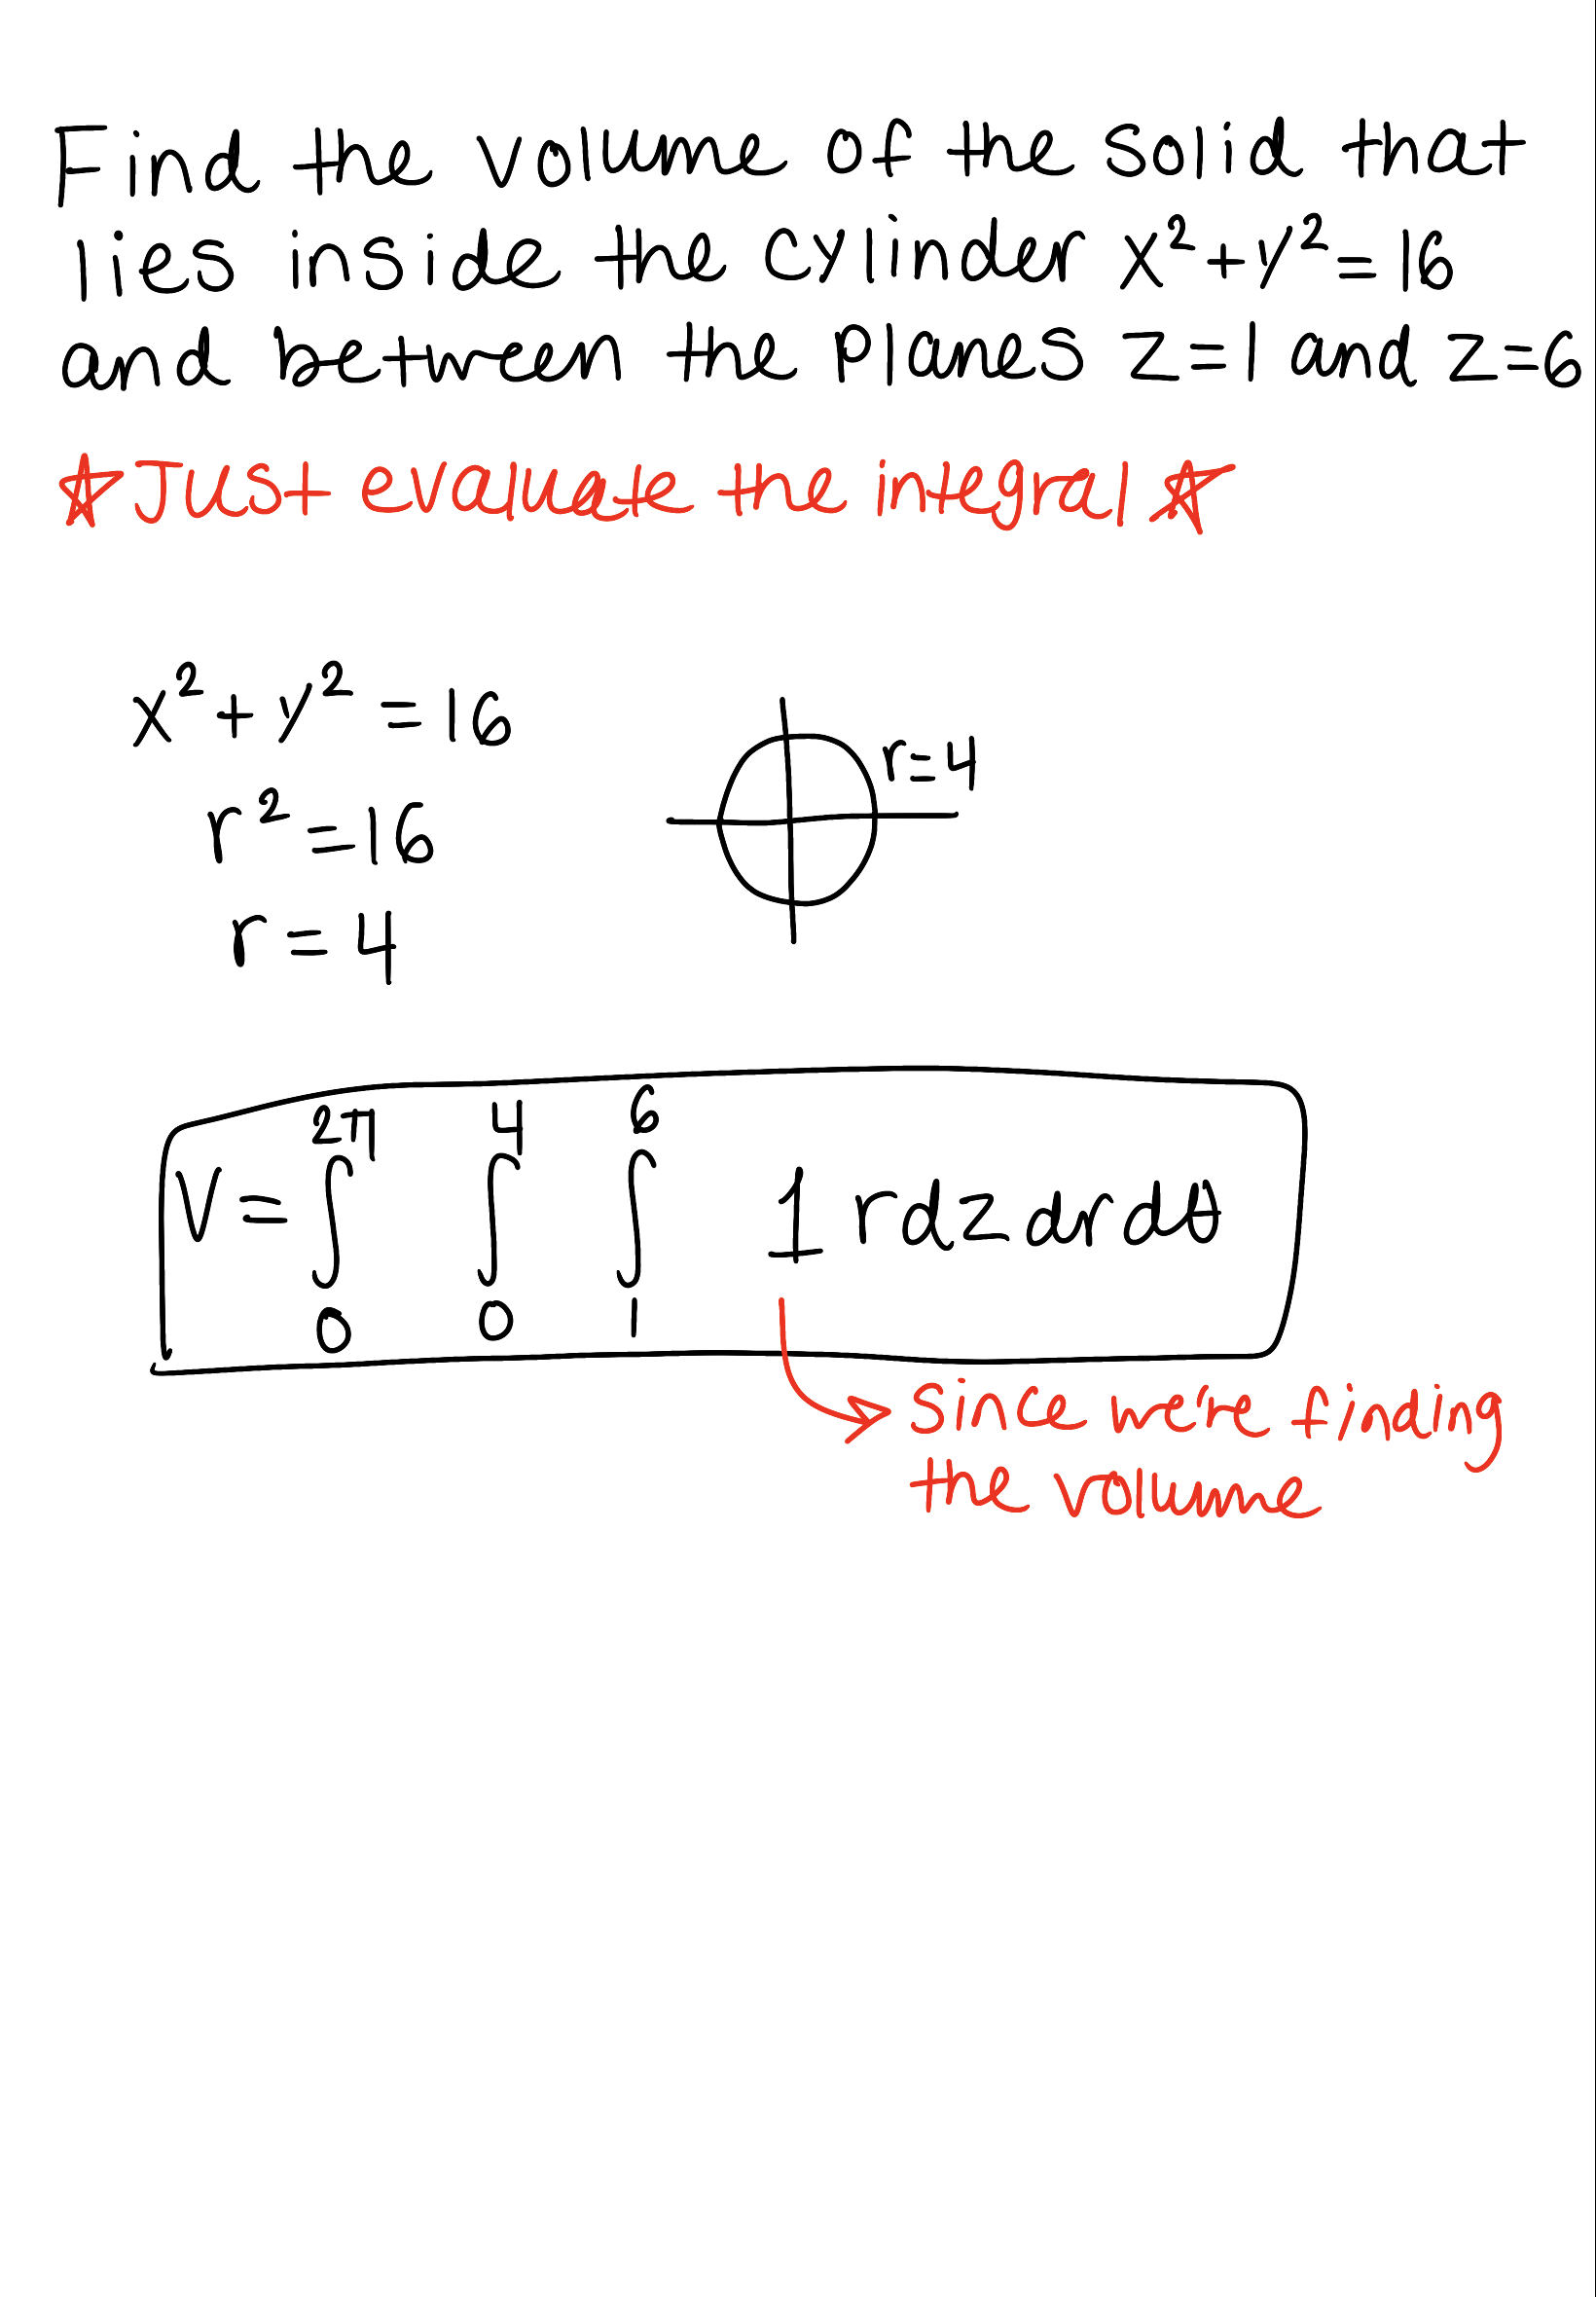 Find the volume of the solid that
lies inside the cylinder x²+y²=16
and between the planes z=1 and z=6
☆ Just evaluate the integral ☆
x²+y²=16
r=4
r²=16
r=4
V=∫₀^2π ∫₀^4 ∫₁^6 1 rdzdrdθ
since we're finding
the volume